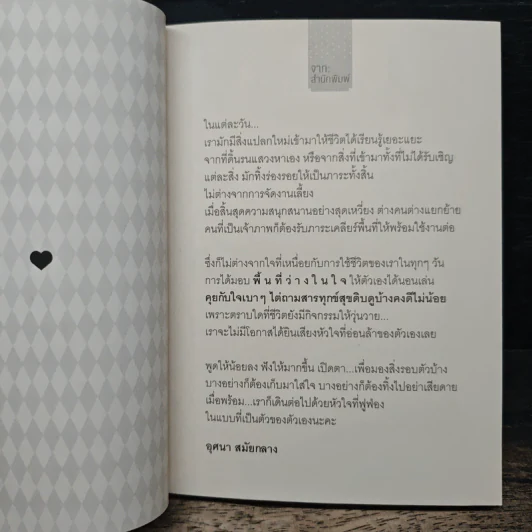 จาก:
สำนักพิมพ์
ในแต่ละวัน...
เรามักมีสิ่งแปลกใหม่เข้ามาให้ชีวิตได้เรียนรู้เยอะแยะ
จากที่ดิ้นรนแสวงหาเอง หรือจากสิ่งที่เข้ามาทั้งที่ไม่ได้รับเชิญ
แต่ละสิ่ง มักทิ้งร่องรอยให้เป็นภาระทั้งสิ้น
ไม่ต่างจากการจัดงานเลี้ยง
เมื่อสิ้นสุดความสนุกสนานอย่างสุดเหวี่ยง ต่างคนต่างแยกย้าย
คนที่เป็นเจ้าภาพก็ต้องรับภาระเคลียร์พื้นที่ให้พร้อมใช้งานต่อ
ซึ่งก็ไม่ต่างจากใจที่เหนื่อยกับการใช้ชีวิตของเราในทุกๆ วัน
การได้มอบ พื้ น ที่ ว่ า ง ใ น ใ จ ให้ตัวเองได้นอนเล่น
คุยกับใจเบาๆ ไต่ถามสารทุกข์สุขดิบดูบ้างคงดีไม่น้อย
เพราะตราบใดที่ชีวิตยังมีกิจกรรมให้วุ่นวาย...
เราจะไม่มีโอกาสได้ยินเสียงหัวใจที่อ่อนล้าของตัวเองเลย
พูดให้น้อยลง ฟังให้มากขึ้น เปิดตา...เพื่อมองสิ่งรอบตัวบ้าง
บางอย่างก็ต้องเก็บมาใส่ใจ บางอย่างก็ต้องทิ้งไปอย่าเสียดาย
เมื่อพร้อม...เราก็เดินต่อไปด้วยหัวใจที่ฟูฟ่อง
ในแบบที่เป็นตัวของตัวเองนะคะ
อุศนา สมัยกลาง